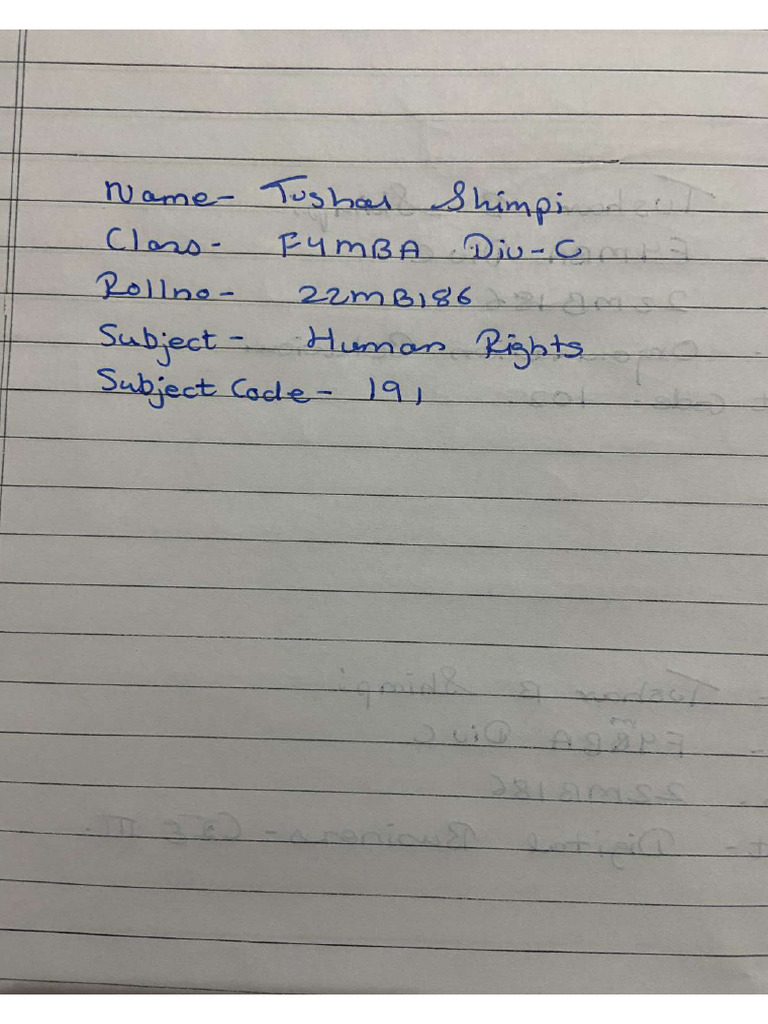 Name- Tushar Shimpi
Class- FYMBA Div-C
Rollno- 22MB186
Subject- Human Rights
Subject Code- 191